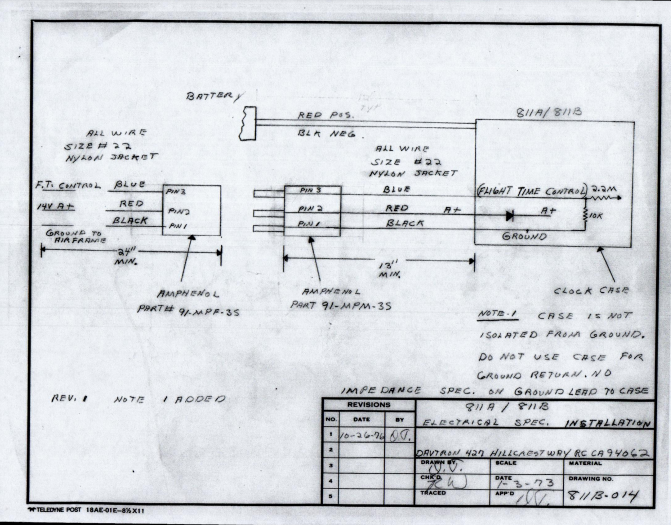 BATTERY
RED POS.
BLK NEG.
811A/811B
ALL WIRE
SIZE #22
NYLON JACKET
ALL WIRE
SIZE #22
NYLON JACKET
F.T. CONTROL
BLUE
PIN 3
14V A+
RED
PIN 2
BLACK
PIN 1
GROUND TO
AIRFRAME
24"
MIN.
PIN 3
BLUE
FLIGHT TIME CONTROL
2.2M
PIN 2
RED
A+
A+
10K
PIN 1
BLACK
GROUND
13"
MIN.
AMPHENOL
PART# 91-MPF-3S
AMPHENOL
PART 91-MPM-3S
CLOCK CASE
NOTE-1 CASE IS NOT
ISOLATED FROM GROUND.
DO NOT USE CASE FOR
GROUND RETURN. NO
IMPEDANCE SPEC. ON GROUND LEAD TO CASE
REV. 1 NOTE 1 ADDED
REVISIONS
NO. DATE BY
1 10-26-76
2
3
4
5
811A / 811B
ELECTRICAL SPEC. INSTALLATION
DAVTRON 427 HILLCREST WAY RC CA 94062
DRAWN BY
SCALE
MATERIAL
CHK'D
DATE 1-3-73
DRAWING NO.
811B-014
TRACED
APP'D
TELEDYNE POST 18AE-01E-8½X11